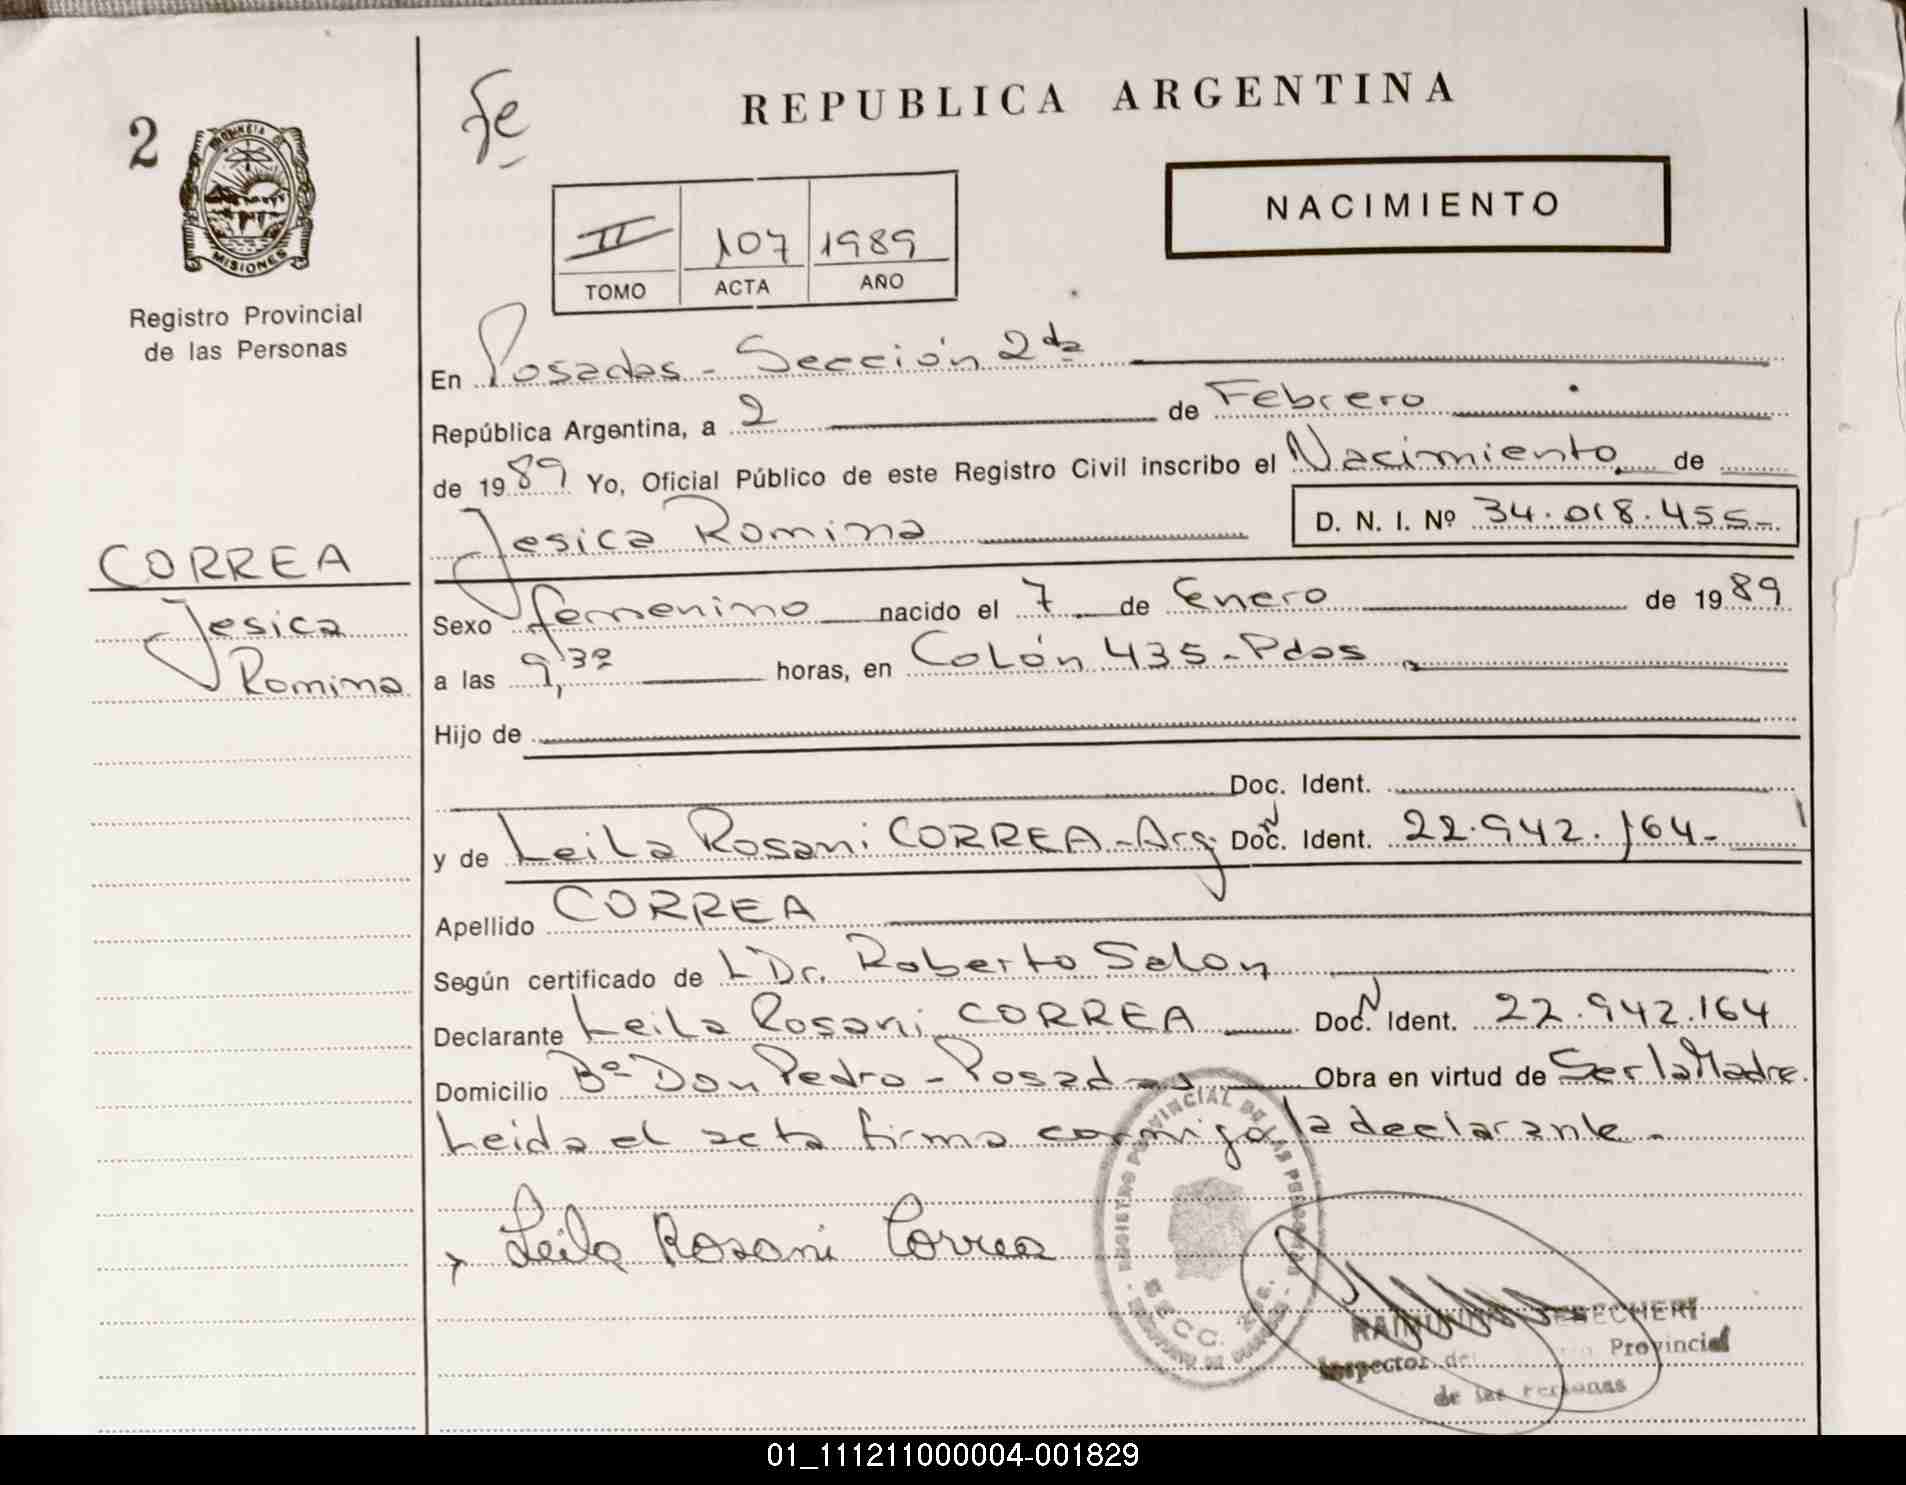 fe
REPUBLICA ARGENTINA
2
PROVINCIA
MISIONES
NACIMIENTO
II 107 1989
TOMO ACTA AÑO
Registro Provincial
de las Personas
En Posadas - Sección 2da
República Argentina, a 2 de Febrero
de 1989 Yo, Oficial Público de este Registro Civil inscribo el Nacimiento de
Jesica Romina D. N. I. Nº 34.018.455-
CORREA
Jesica
Romina
Sexo femenino nacido el 7 de Enero de 1989
a las 9,30 horas, en Colón 435-Pdas
Hijo de
Doc. Ident.
y de Leila Rosani CORREA-Arg. Doc. N Ident. 22.942.164-
Apellido CORREA
Según certificado de L Dr. Roberto Salon
Declarante Leila Rosani CORREA Doc. N Ident. 22.942.164
Domicilio Bº Don Pedro - Posadas Obra en virtud de Ser la Madre.
Leida el acta firma conmigo la declarante.
Leila Rosani Correa
REGISTRO PROVINCIAL DE LAS PERSONAS
SECC.
Inspector del Provincial
de las Personas
01_111211000004-001829